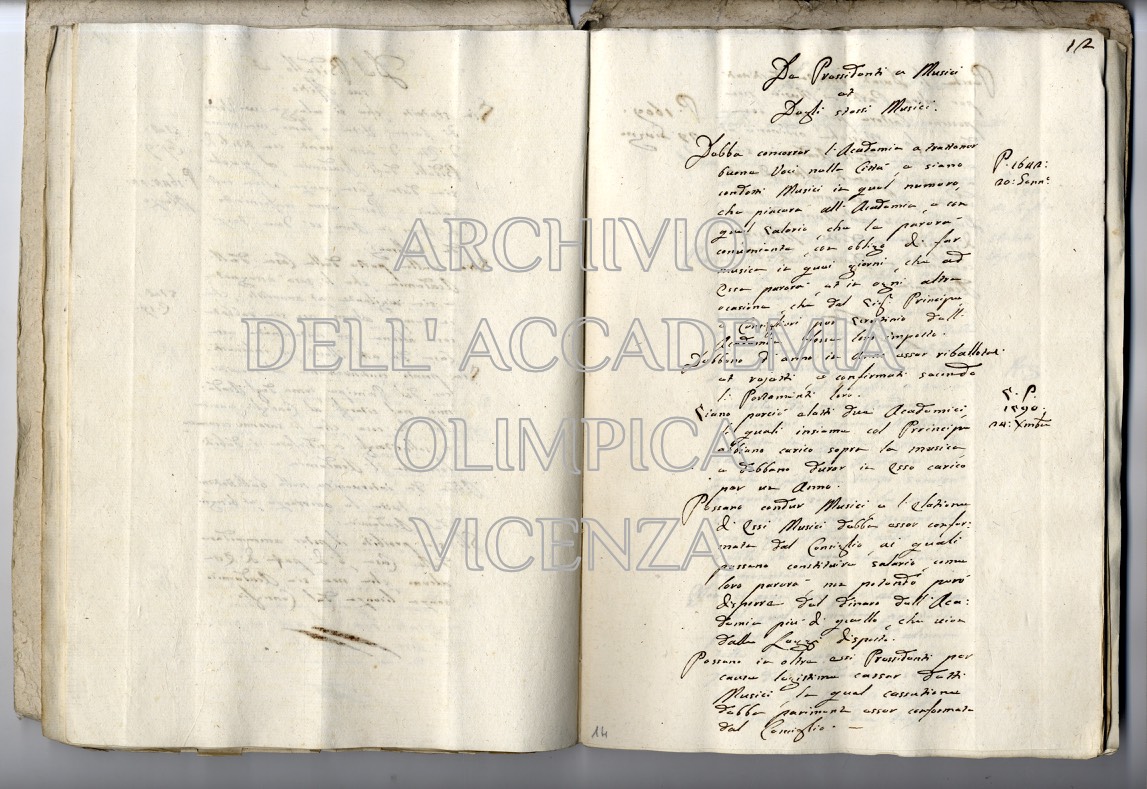 12
De Pressidenti a Musici
et
Degli stessi Musici.
Debba concorrer l'Academia a trattener
buone Voci nella Città, e siano
condotti Musici in qual numero,
che piacerà all'Academia, e con
qual salario, che le parerà
conveniente, con obligo di far
musica in quei giorni, che ad
Essa parerà et in ogni altra
ocasione, che dal Sig.r Principe
e Consiglieri per servitio dell'
Academia fosse loro imposto.
Debbano d'anno in anno esser riballotati
et rejetti, e confirmati secondo
li Portamenti loro.
Siano perciò eletti due Academici,
li quali insieme col Prencipe
abbiano carico sopra la musica,
e debbano durar in Esso carico
per un Anno.
Possano condur Musici e l'eletione
di Essi Musici debba esser confer:
mata dal Consiglio, ai quali
possano constituire salario, come
loro parerà ne potendo però
disporre del dinaro dell'Aca:
demia più di quello, che vien
dalle Leggi disposto.
Possano in oltre essi Pressidenti per
causa legittima cassar detti
Musici, la qual cassatione
debba parimente esser confermata
dal Consiglio. —
P. 1644:
20: Genn.o
S. P.
1590.
24: Xmbre
14
ARCHIVIO
DELL'ACCADEMIA
OLIMPICA
VICENZA